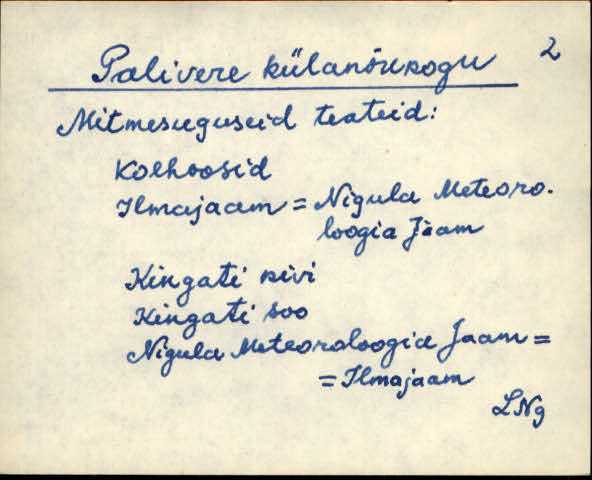 Palivere külanõukogu 2
Mitmesuguseid teateid:
Kolhoosid
Ilmajaam = Nigula Meteoro-
loogia Jaam
Kingati kivi
Kingati soo
Nigula Meteoroloogia Jaam =
= Ilmajaam
LNg